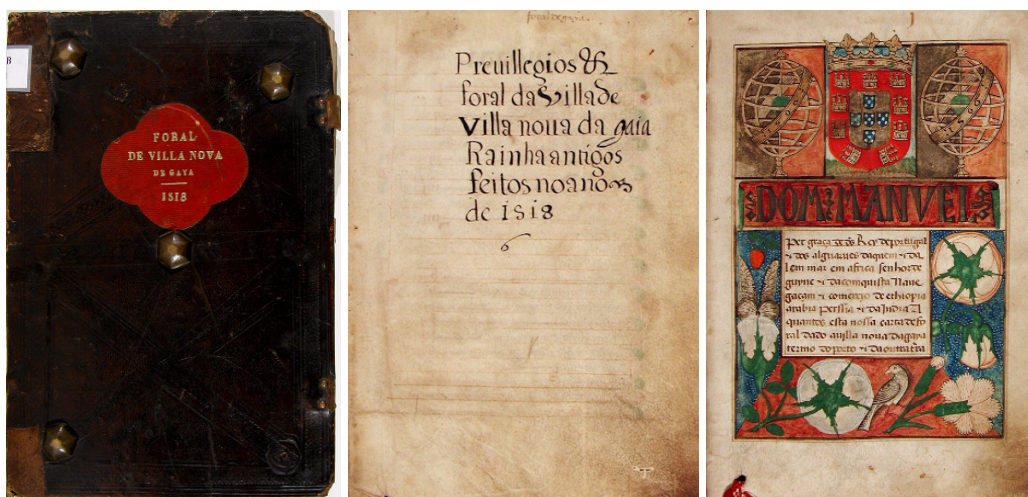 B
FORAL
DE VILLA NOVA
DE GAYA
1518
foral de gaia
Preuillegios &
foral da Villa de
Villa noua da gaia
Rainha antigos
feitos no ano
de 1518
DOM MANVEL
Per graça de ds Rey de portugal
e dos alguarues daquem e da
lem mar em africa senhor de
guyne e da comquista Naue
gaçam e comercio de ethiopia
arabia perssia e da India A
quantos esta nossa carta de fo
ral dado a uilla noua da gaya
termo do porto e da